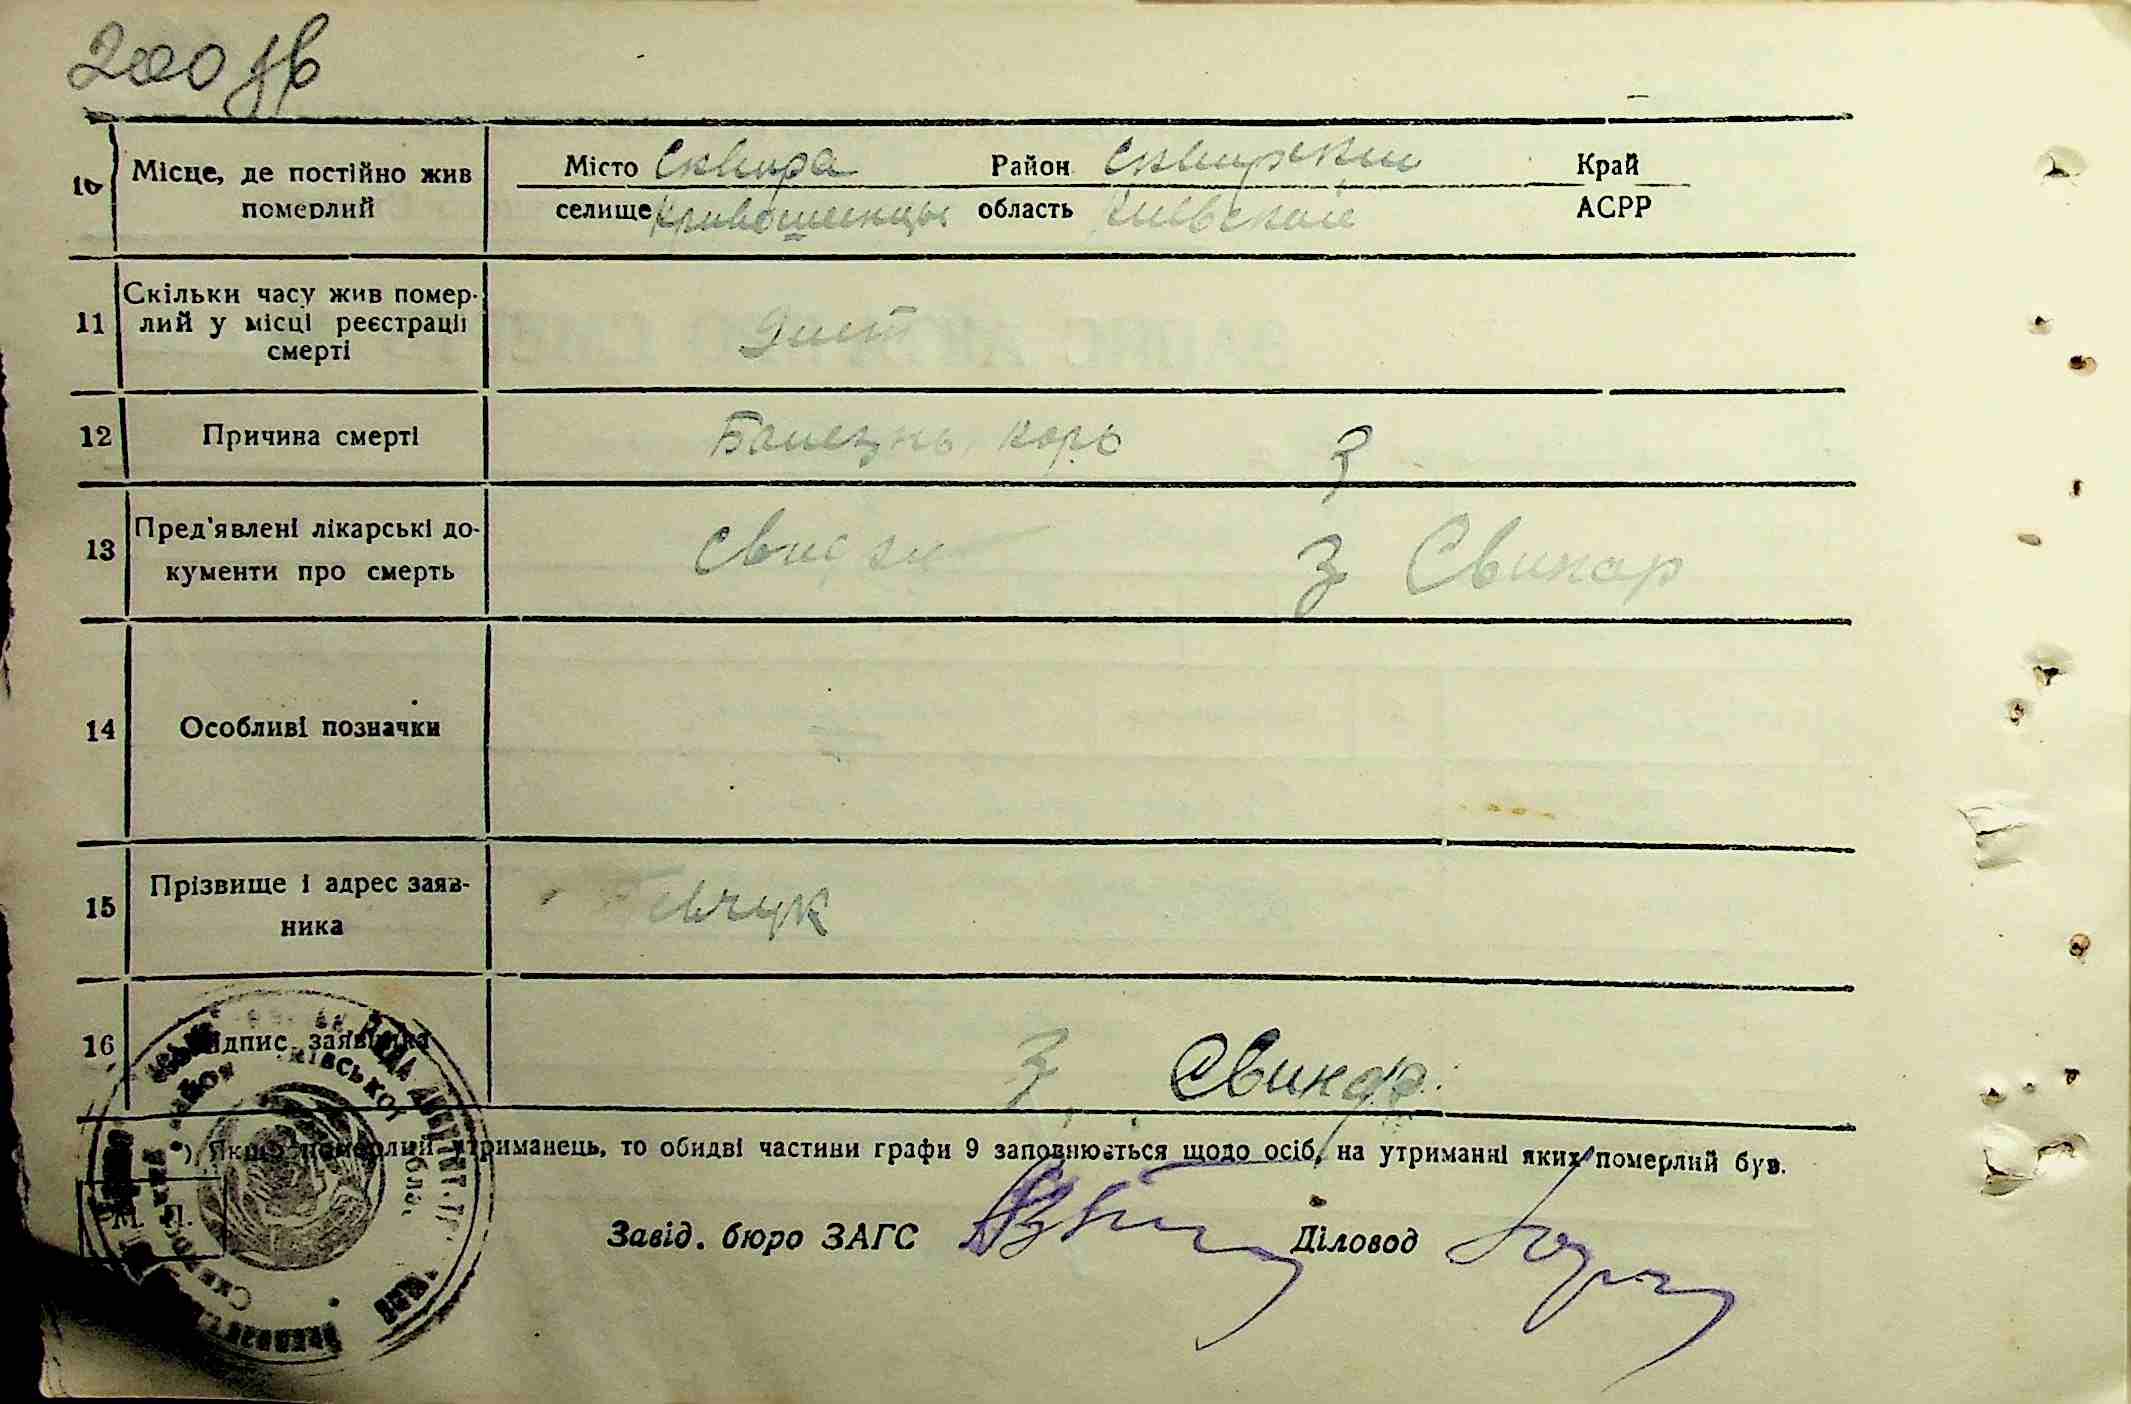 200
10 Місце, де постійно жив померлий
Місто Сквира Район Сквирский Край
селище Кривошеинцы область Киевской АСРР
11 Скільки часу жив помер-
лий у місці реєстрації
смерті
12 Причина смерті Болезнь корь З
13 Пред'явлені лікарські до-
кументи про смерть З Свинар
14 Особливі позначки
15 Прізвище і адрес заяв-
ника
16 Підпис заявника З Свинар
*) Якщо померлий утриманець, то обидві частини графи 9 заповнюється щодо осіб, на утриманні яких померлий був.
М. П.
Завід. бюро ЗАГС Діловод